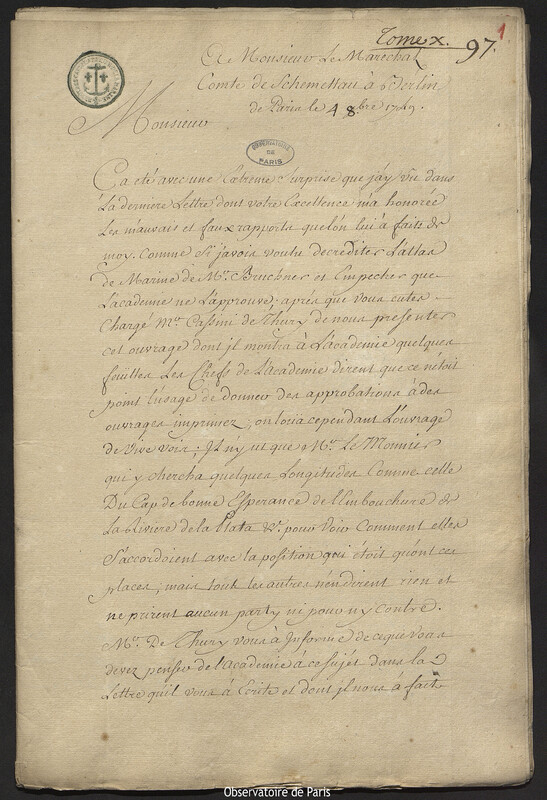 Tome x.
97.
1
A Monsieur Le Marechal
Comte de Schemettau à Berlin
de Paris le 4 8.bre 1749.
OBSERVATOIRE
DE
PARIS
Monsieur
Ca eté avec une Extreme Surprise que j'ay vu dans
La derniere Lettre dont votre Excellence m'a honorée
Les mauvais et faux rapports que l'on lui à faits de
moy. Comme Si j'avois voulu decrediter L'atlas
de Marine de Mr. Bruckner et Empecher que
L'academie ne L'approuve; aprés que vous eutes
Chargé Mr. Cassini de Thury de nous presenter
cet ouvrage dont jl montra à L'academie quelques
feuilles Les Chefs de L'academie dirent que ce n'étoit
point L'usage de donner des approbations à des
ouvrages imprimez, on loüa cependant L'ouvrage
de Vive Voix; Jl n'y eut que Mr. Le Monnier
qui y chercha quelques Longitudes Comme celle
Du Cap de bonne Esperance de L'Embouchure de
La Riviere de la Plata &c. pour Voir Comment elles
S'accordoient avec la position qui étoit qu'ont ces
places, mais tout les autres n'en dirent rien et
ne prirent aucun party ni pour ny contre.
Mr. De Thury vous à Informé de ce que Vous
devez penser de L'academie à ce sujet dans la
Lettre qu'il vous à Ecrite et dont jl nous à fait
Observatoire de Paris